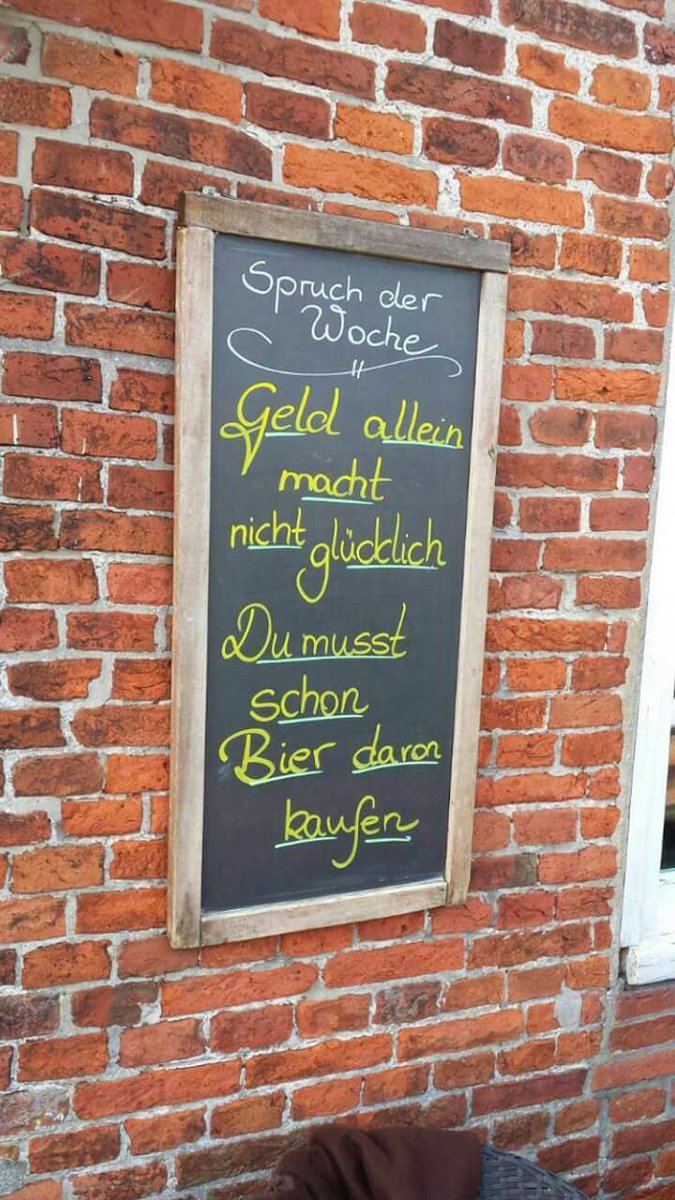 Spruch der
Woche
Geld allein
macht
nicht glücklich
Du musst
schon
Bier daron
kaufen